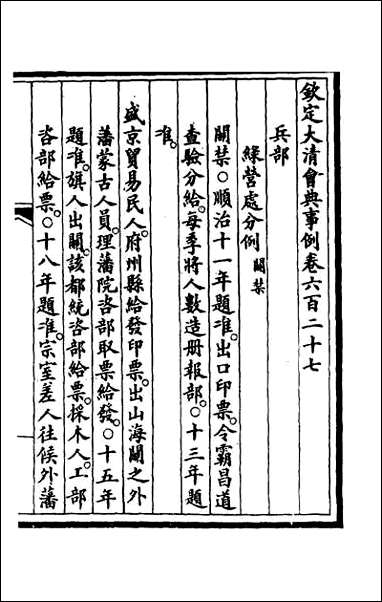 欽定大清會典事例卷六百二十七
兵部
綠營處分例 關禁
關禁○順治十一年題准。出口印票。令霸昌道
查驗分給。每季將人數造册報部。○十三年題
准。
盛京貿易民人。府州縣給發印票。出山海關之外
藩蒙古人員。理藩院咨部取票給發。○十五年
題准。旗人出關。該都統咨部給票。採木人。工部
咨部給票。○十八年題准。宗室差人往候外藩